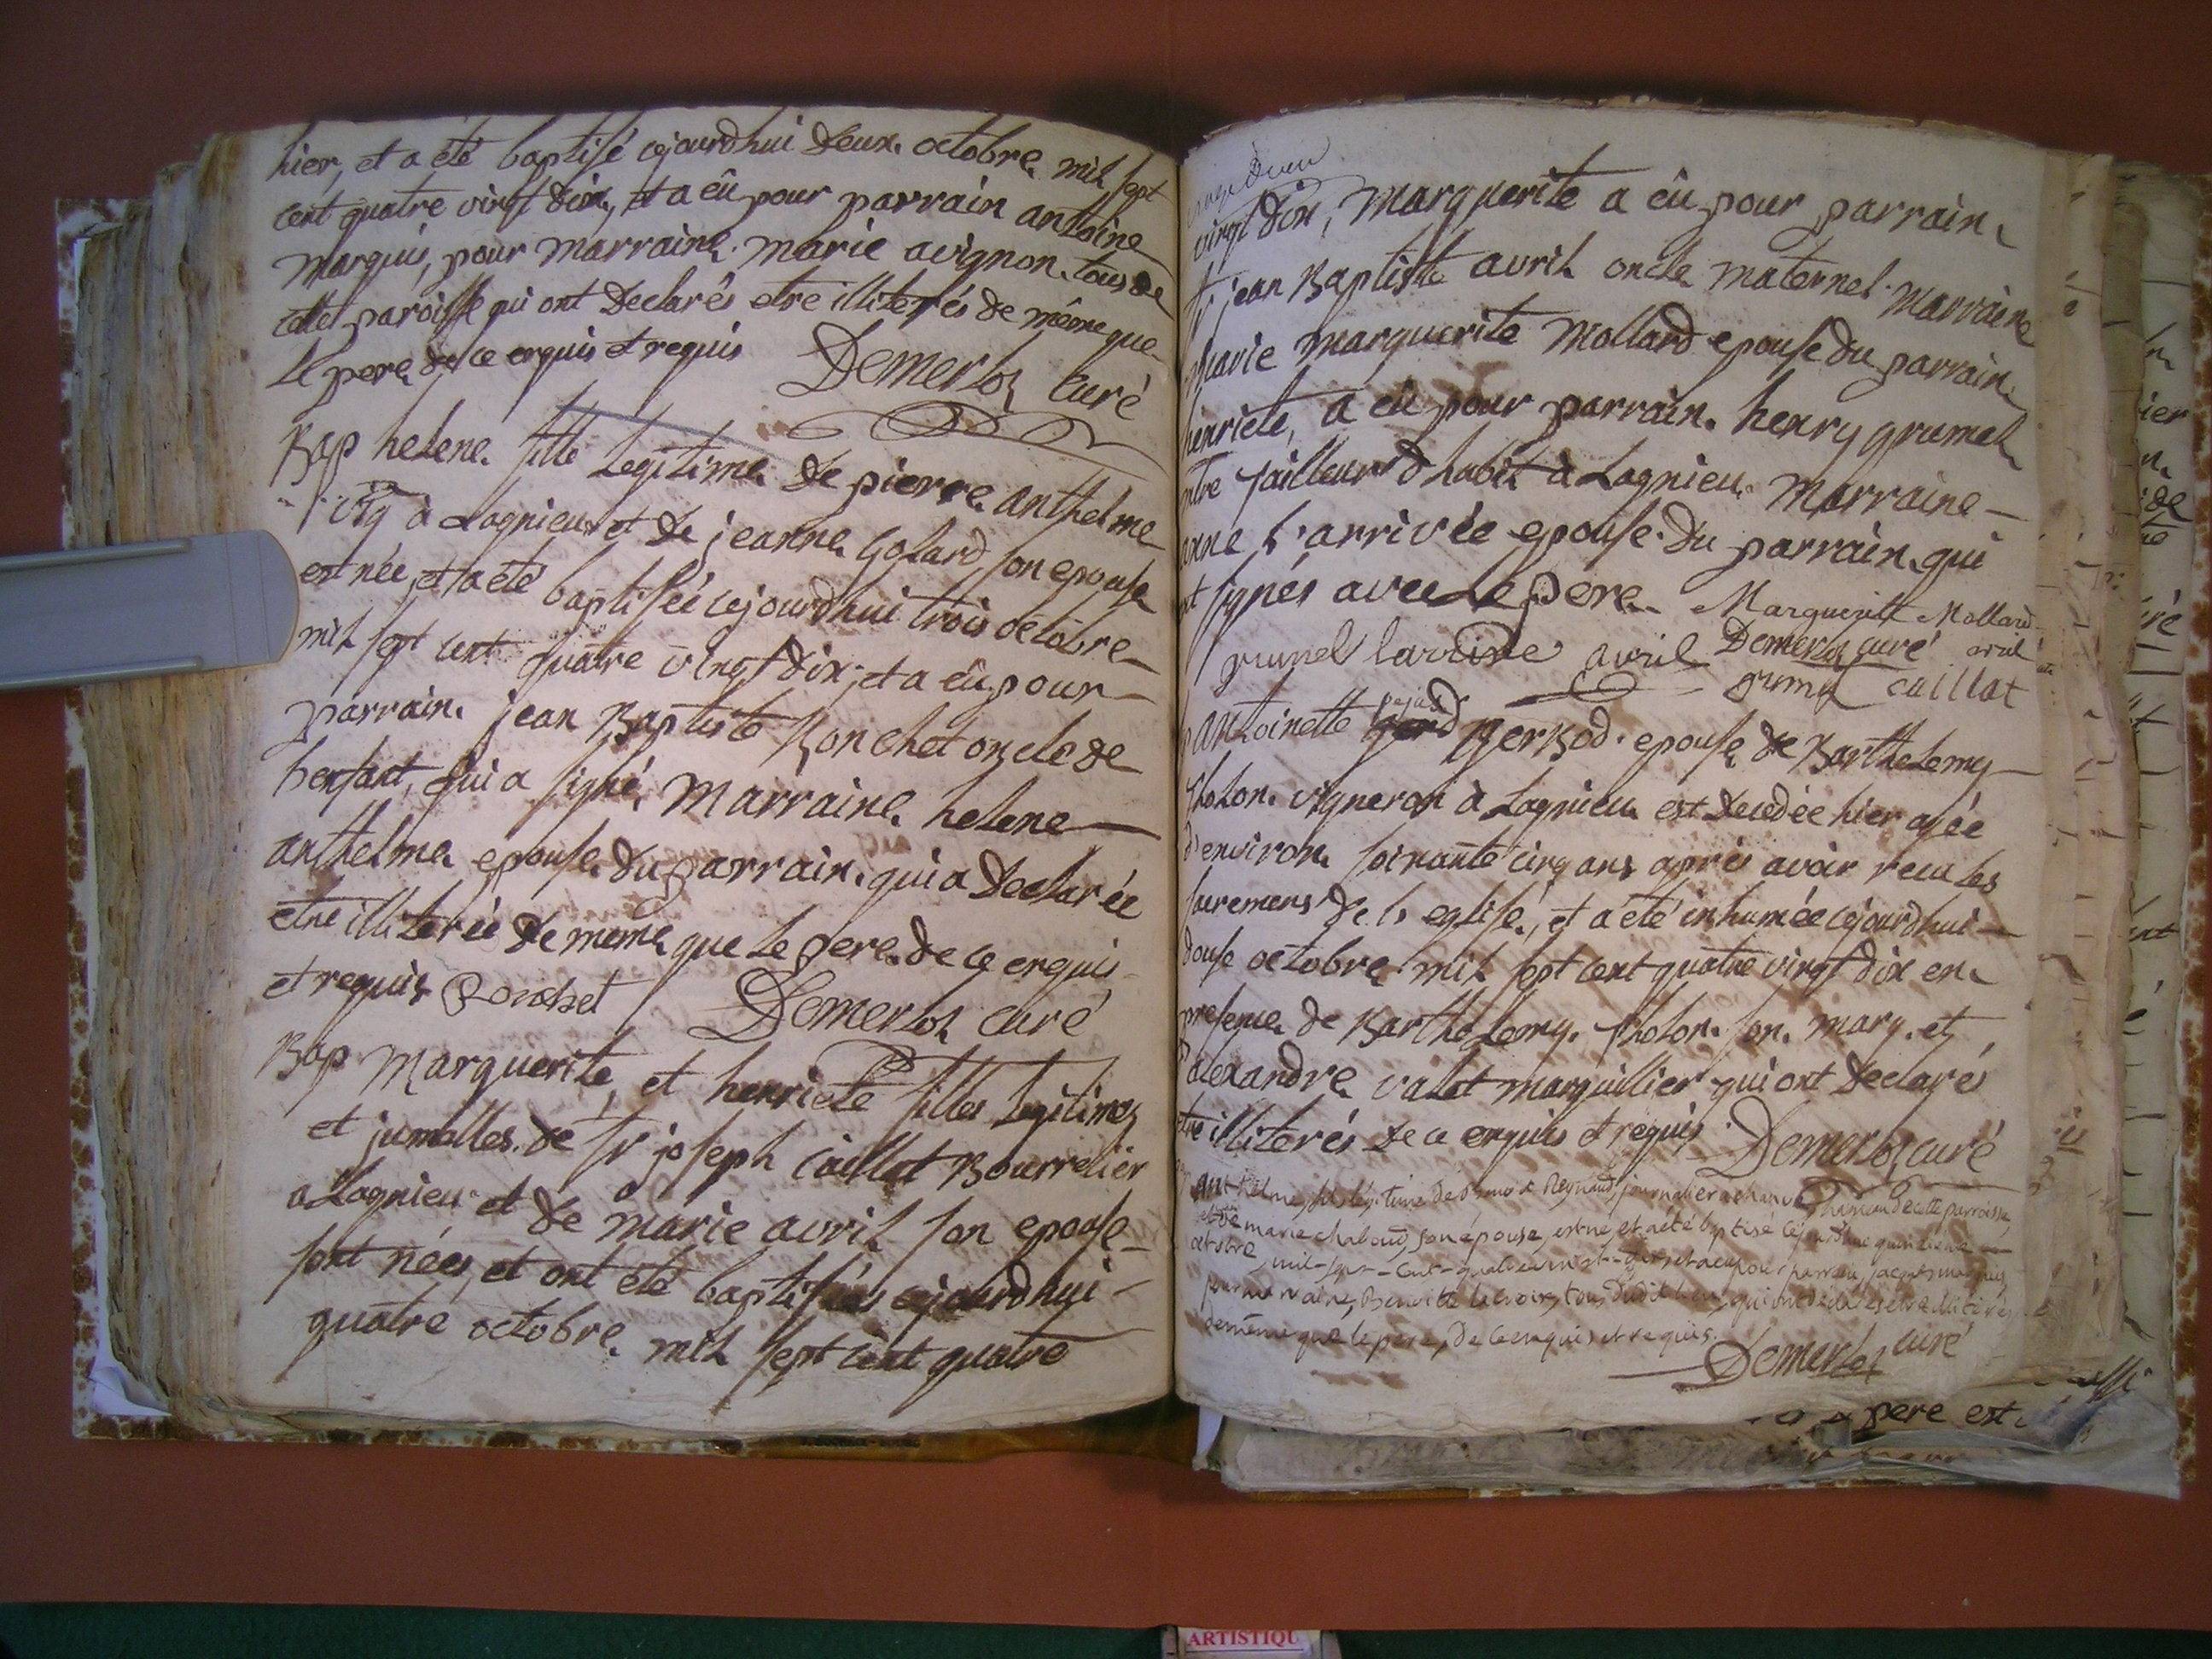 hier, et a été baptisé cejourdhui deux octobre mil sept
cent quatre vingt dix, et a eû pour parrain antoine
marquis, pour marraine marie avignon tous de
cette paroisse qui ont declarés etre illiterés de même que
le pere de ce enquis et requis Demerloz curé
Bap helene fille legitime de pierre anthelme
vig à Lagnieu et de jeanne Golard son epouse
est née, et a été baptisée cejourdhui trois octobre
mil sept cent quatre vingt dix, et a eû pour
parrain jean Baptiste Ronchet oncle de
l'enfant, qui a signé, marraine helene
anthelme epouse du parrain qui a declarée
etre illiterée de meme que le pere de ce enquis
et requis Ronchet Demerloz curé
Bap Marguerite, et henriete filles legitimes
et jumelles de sr joseph Caillat Bourrelier
a Lagnieu et de marie avril son epouse
sont nées, et ont été baptisées cejourdhui
quatre octobre mil sept cent quatre
vingt dix, marguerite a eû pour parrain
sr jean Baptiste avril oncle maternel marraine
marie marguerite Mollard epouse du parrain
henriete, a eû pour parrain henry grumel
tailleur d'habit à Lagnieu marraine
anne l'arrivée epouse du parrain qui
ont signés avec le pere Marguerite Mollard
grumel avril Demerloz curé avril
grumel caillat
antoinette Berrod epouse de Barthelemy
tholon vigneron à Lagnieu est decedée hier agée
d'environ soixante cinq ans après avoir recu les
sacremens de l'eglise, et a été inhumée cejourdhui
douse octobre mil sept cent quatre vingt dix en
presence de Barthelemy tholon son mary et
alexandre valet marguillier qui ont declarés
etre illiterés de ce enquis et requis Demerloz curé
anthelme, fils légitime de Reynaud, journalier a hameau de cette parroisse,
et de marie chaboud, son épouse, est né, et a été baptisé cejourdhui
octobre, mil-sept-cent-quatre vingt-dix, et a eu pour parrain, jacques marquis
pour marraine, Benoite lacroix, tous dudit lieu, qui ont déclarés etre illitérés
de même que le père, de ce enquis et requis.
Demerloz curé
pere est
ARTISTIQU